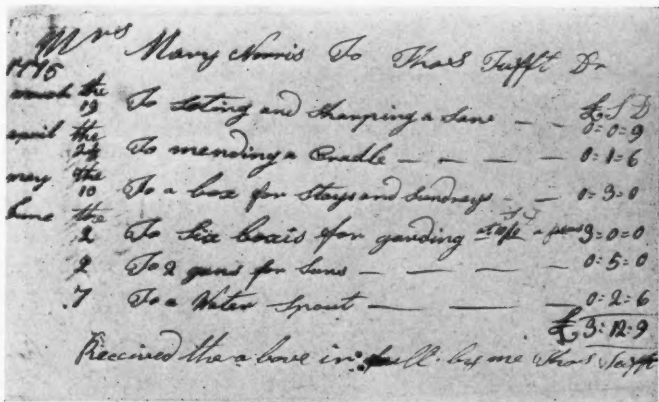 Mrs Mary Norris To Thos Tufft Dr
1775
march the £ S D
19 To Seting and Sharping a Saw — — 0=0=9
april the
24 To mending a Cradle — — — — 0=1=6
may the
10 To a box for Stays and Sundrays - — 0=3=0
June the
2 To Six boxis for garding a peas 3=0=0
2 To 2 for — — — — 0=5=0
.7 To a Water Spout — — — — 0=2=6
£3=12=9
Received the a bove in full by me Thos Tufft